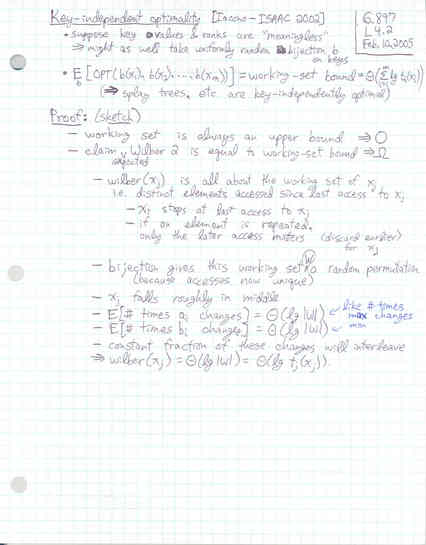 Key-independent optimality [Iacono - ISAAC 2002]
6.897
L4.2
Feb. 10, 2005
• suppose key values & ranks are "meaningless"
⇒ might as well take uniformly random bijection b
on keys
• E_b[OPT(b(x₁), b(x₂), ..., b(xₘ))] = working-set bound = Θ(Σ lg tᵢ(xᵢ))
(⇒ splay trees, etc. are key-independently optimal)
Proof: (sketch)
- working set is always an upper bound ⇒ O
- claim Wilber 2 is equal to working-set bound ⇒ Ω
expected
- wilber(xⱼ) is all about the working set of xⱼ
i.e. distinct elements accessed since last access to xⱼ
- xⱼ stops at last access to xⱼ
- if an element is repeated,
only the later access matters (discard earlier)
for xⱼ
- bijection gives this working set W a random permutation
(because accesses now unique)
- xⱼ falls roughly in middle
- E[# times aᵢ changes] = Θ(lg |W|) like # times
max changes
- E[# times bᵢ changes] = Θ(lg |W|)
- constant fraction of these changes will interleave
⇒ wilber(xⱼ) = Θ(lg |W|) = Θ(lg tⱼ(xⱼ)).